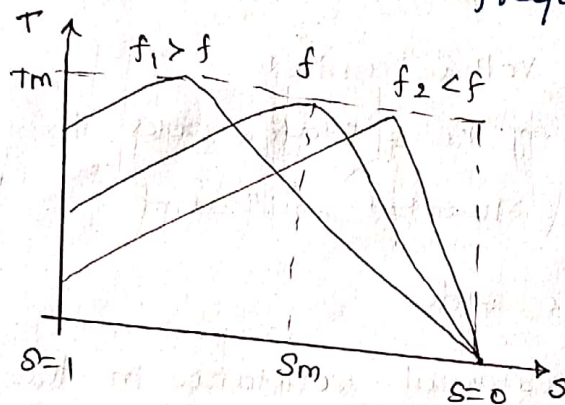 T
Tm
f₁ > f
f
f₂ < f
S=1
Sm
S=0
S